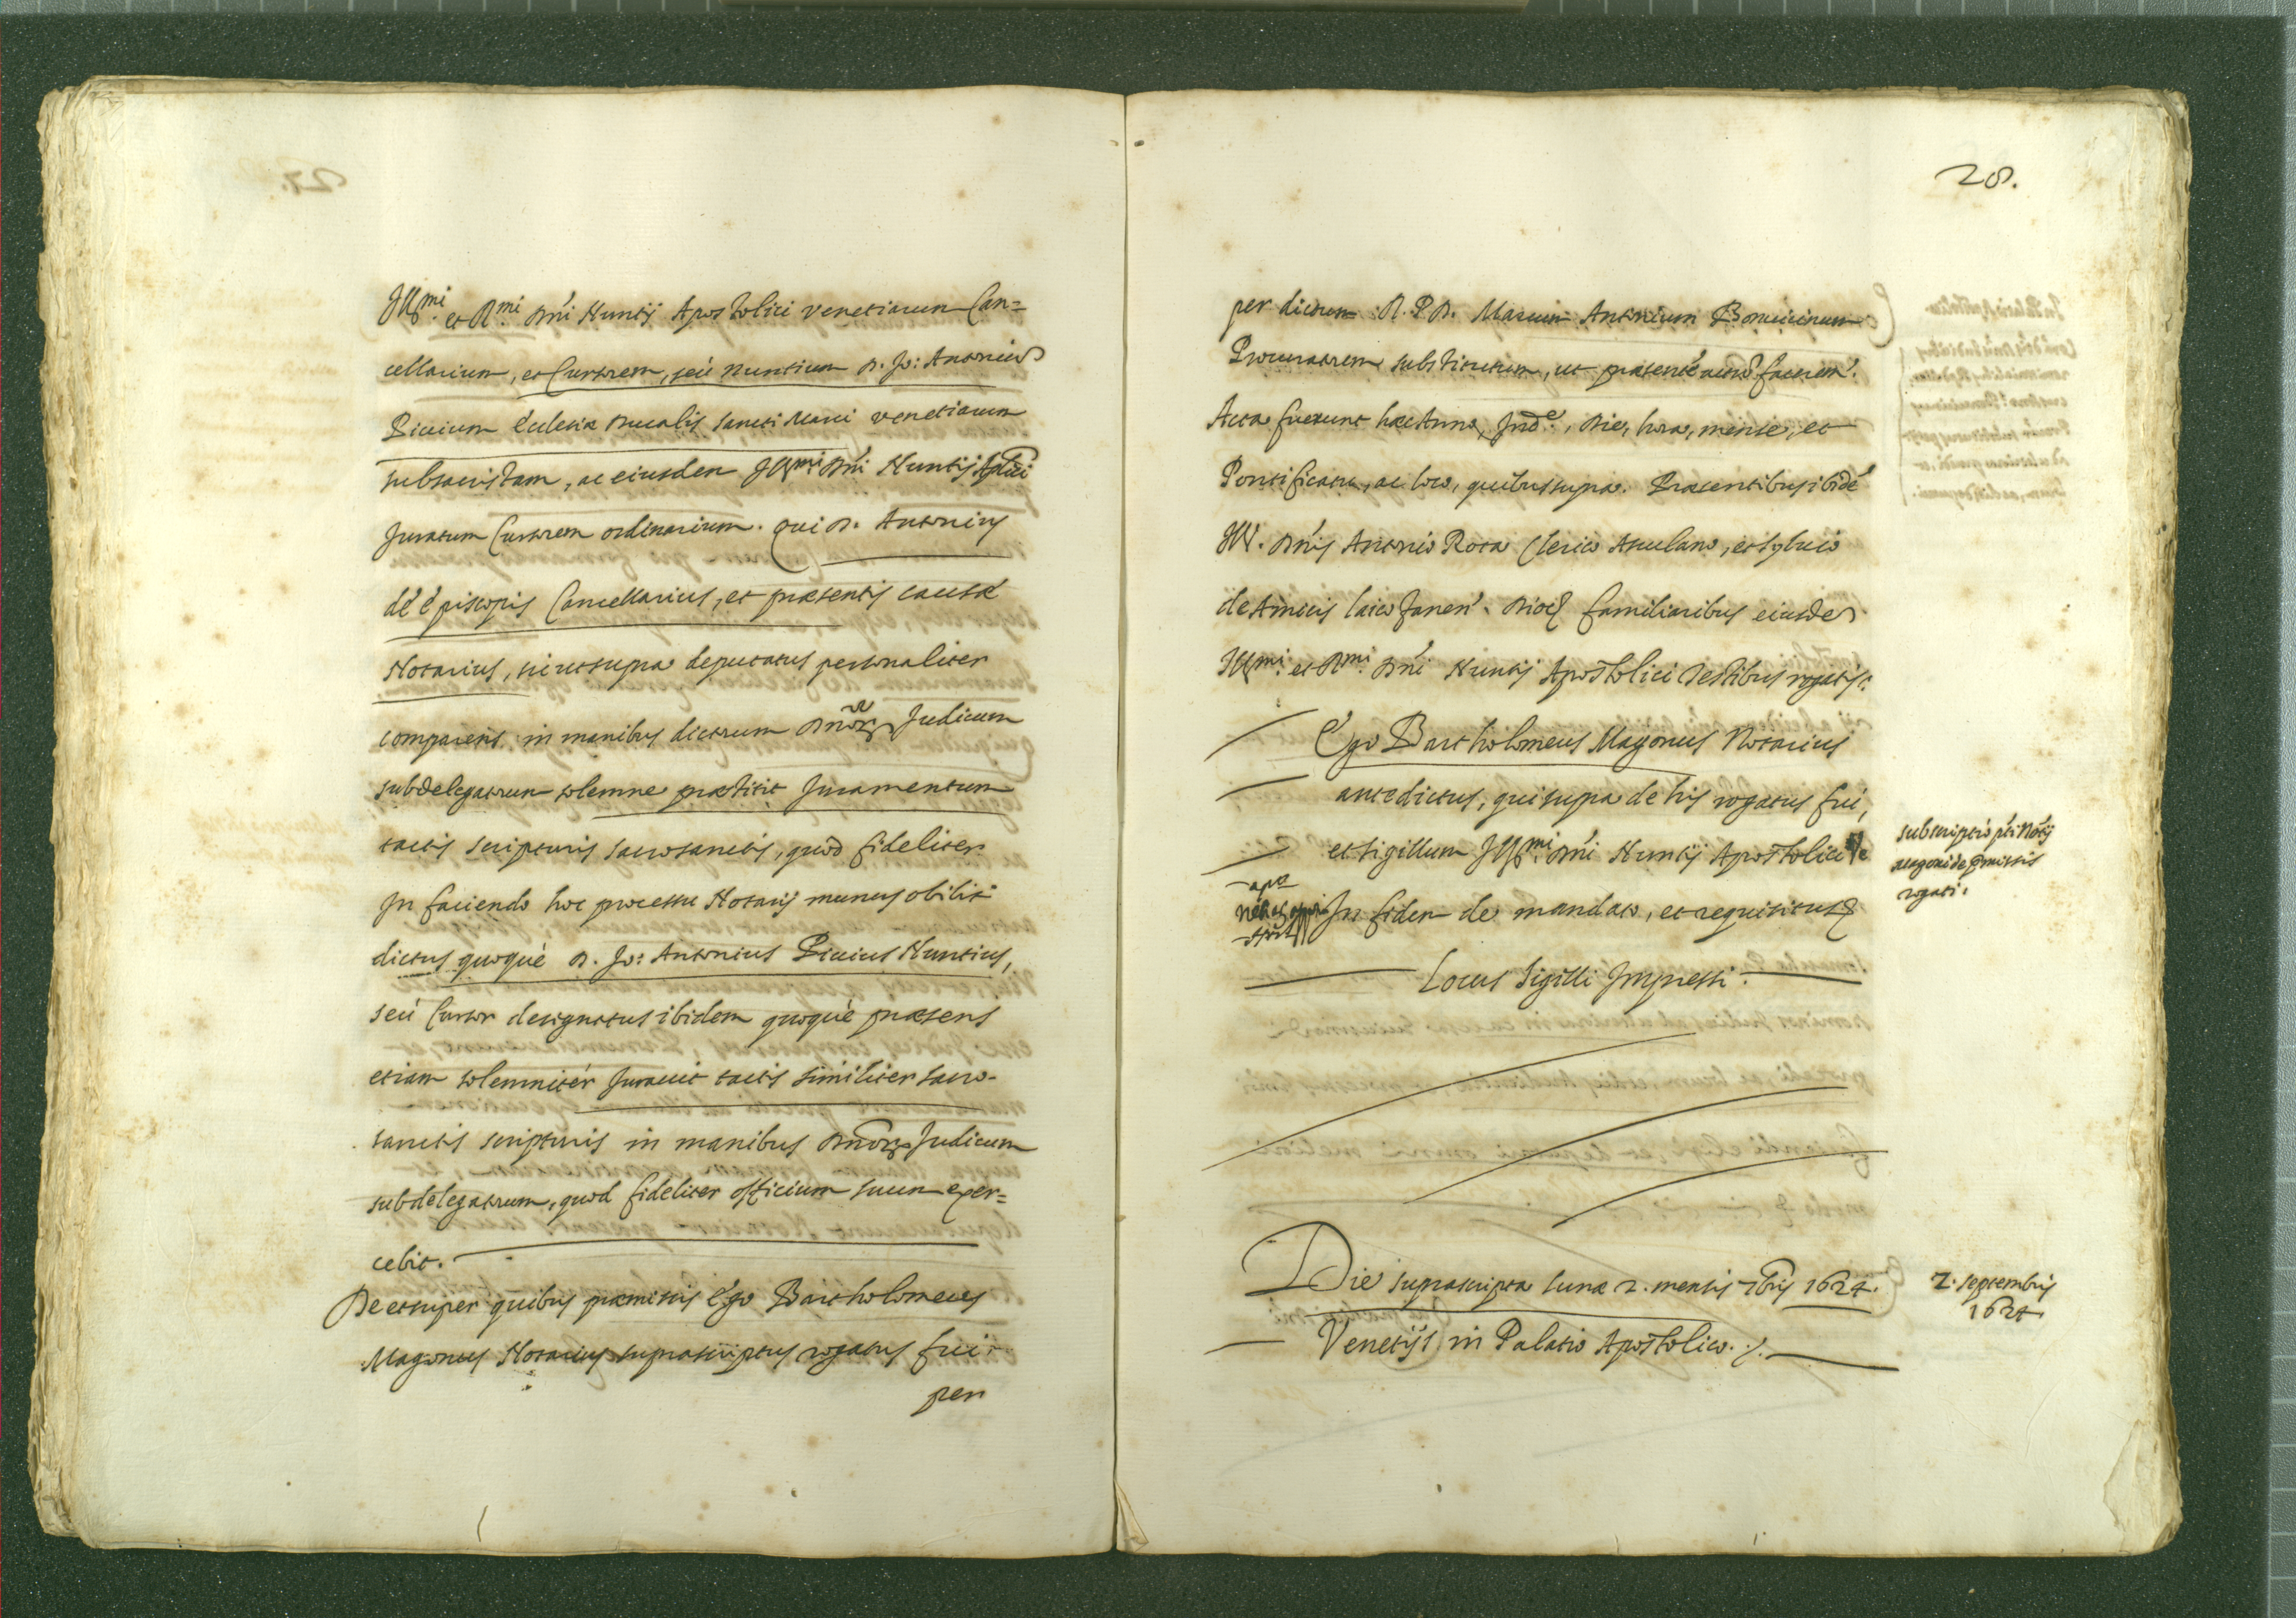 Ill.mi et R.mi Dni Nuntij Apostolici Venetiarum Can=
cellarium, et Cursorem, seù Nuntium D. Jo: Antonium
Picium Ecclesiæ Ducalis Sancti Marci Venetiarum
subsacristam, ac eiusdem Ill.mi Dni Nuntij Aplici
Juratum Cursorem ordinarium. Qui D. Antonius
de Episcopis Cancellarius, et præsentis causæ
Notarius, sic ut supra deputatus personaliter
comparens in manibus dictorum Dnor Judicum
subdelegatorum solemne præstitit Juramentum
tactis scripturis sacrosanctis, quod fideliter
In faciendo hoc processu Notarij munus obibit
dictus quoquè D. Jo: Antonius Picius Nuntius,
seù Cursor designatus ibidem quoquè præsens
etiam solemnitèr Juravit tactis similiter sacro-
sanctis scripturis in manibus Dnor Judicum
subdelegatorum, quod fideliter officium suum exer=
cebit.
De et super quibus præmissis Ego Bartholomeus
Magonus Notarius suprascriptus rogatus fui
per
28.
per dictum R. P. D. Marcum Antonium
Procuratorem substitutum, ut præsente actu facerem.
Acta fuerunt hæc Anno, Ind.e, Die, hora, mense, et
Pontificatu, ac loco, quibus supra. Præsentibus ibidē
Ill. Dnis Antonio Rota Clerico Asculano, et Sylvio
de Amicis laico Fanen. Dioc familiaribus eiusdem
Ill.mi et R.mi Dni Nuntij Apostolici Testibus rogatis.
Ego Bartholomeus Magonus Notarius
antedictus, qui supra de his rogatus fui,
et sigillum Ill.mi Dni Nuntij Apostolici
In fidem de mandato, et requisitus
Locus Sigilli Impressi.
subscriptio pti Notij
Magoni de pmissis
rogati.
Die suprascripta Lunæ 2. mensis 7bris 1624.
Venetijs in Palatio Apostolico.
2. septembris
1624